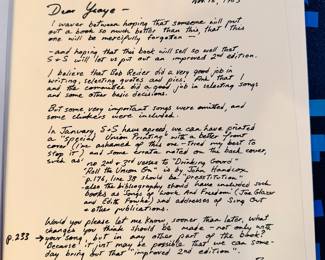 Nov. 18, 1985
Dear Yeaye —
I waver between hoping that someone will put
out a book so much better than this, that this
one will be mercifully forgotten —
—and hoping that this book will sell so well that
S+S will let us put out an improved 2nd edition.
I believe that Bob Reiser did a very good job in
writing, selecting quotes and pics, that I
and the committee did a good job in selecting songs
and some other basic decisions.
But some very important songs were omitted, and
some clinkers were included.
In January, S+S have agreed, we can have printed
a "Special Union Printing" with a better front
cover (I'm ashamed of this one—tried my best to
stop it) and some errata noted on the back cover,
such as:
no 2nd + 3rd verse to "Drinking Gourd"
"Roll the Union On" is by John Handcox
p. 176, line 38 should be "prostitution" —
—also the bibliography should have included such
books as Songs of Work And Freedom (Joe Glazer
and Edith Fowke) and addresses of Sing Out
+ other publications.
Would you please let me know, sooner than later, what
changes you think should be made — not only with
p.233 → your song, but in any other part of the book?
Because it just may be possible that we can some-
day bring out that "improved 2nd edition".